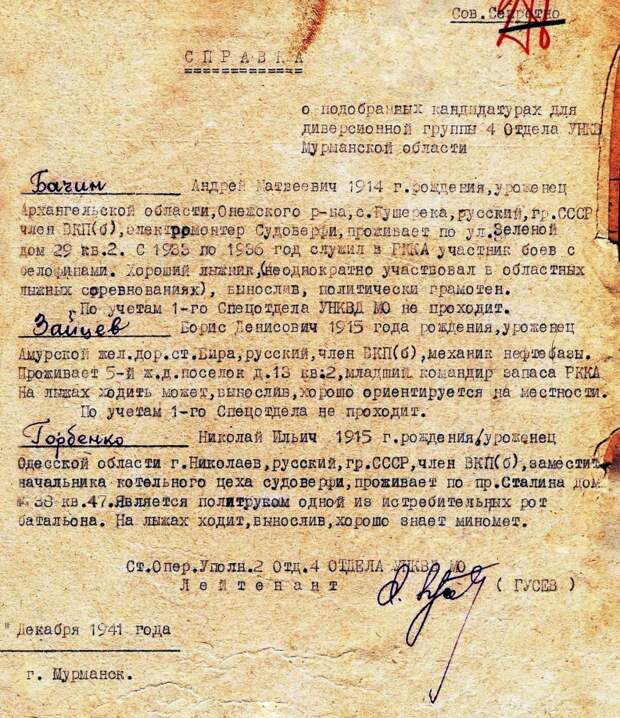 Сов.Секретно
СПРАВКА
о подобранных кандидатурах для
диверсионной группы 4 Отдела УНКВ
Мурманской области
Бачин Андрей Матвеевич 1914 г.рождения,уроженец
Архангельской области,Онежского р-на,с.Кушерека,русский,гр.СССР
член ВКП(б),электромонтер Судоверфи,проживает по ул.Зеленой
дом 29 кв.2. С 1933 по 1936 год служил в РККА участник боев с
белофинами. Хороший лыжник,(неоднократно участвовал в областных
лыжных соревнованиях), вынослив, политически грамотен.
По учетам 1-го Спецотдела УНКВД МО не проходит.
Зайцев Борис Денисович 1915 года рождения,уроженец
Амурской жел.дор.ст.Бира,русский,член ВКП(б),механик нефтебазы.
Проживает 5-й ж.д.поселок д.13 кв.2,младший командир запаса РККА
На лыжах ходить может,вынослив,хорошо ориентируется на местности.
По учетам 1-го Спецотдела не проходит.
Горбенко Николай Ильич 1915 г.рождения,уроженец
Одесской области г.Николаев,русский,гр.СССР,член ВКП(б),заместит
начальника котельного цеха судоверфи,проживает по пр.Сталина дом
№ 38 кв.47.Является политруком одной из истребительных рот
батальона. На лыжах ходит,вынослив,хорошо знает миномет.
Ст.Опер.Уполн.2 Отд.4 ОТДЕЛА УНКВД МО
Лейтенант (ГУСЕВ)
" Декабря 1941 года
г. Мурманск.